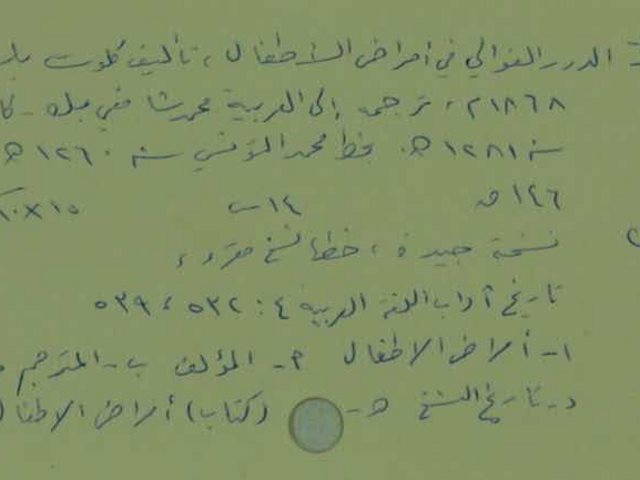 الدرر الغوالي في أمراض الأطفال ، تأليف كلوت
١٨٦٨م ، ترجمه إلى العربية محمد شافعي بك - كا
سنة ١٢٨١ هـ . بخط محمد التونسي سنة ١٢٦٠ هـ
١٤٦ ق ١٤ س
نسخة جيدة ، خطها نسخ مقروء ،
تاريخ آداب اللغة العربية ٤ : ٥٣٢ ، ٥٣٩
١- أمراض الاطفال أ- المؤلف ب- المترجم
د- تاريخ النسخ هـ- (كتاب) أمراض الاطفال